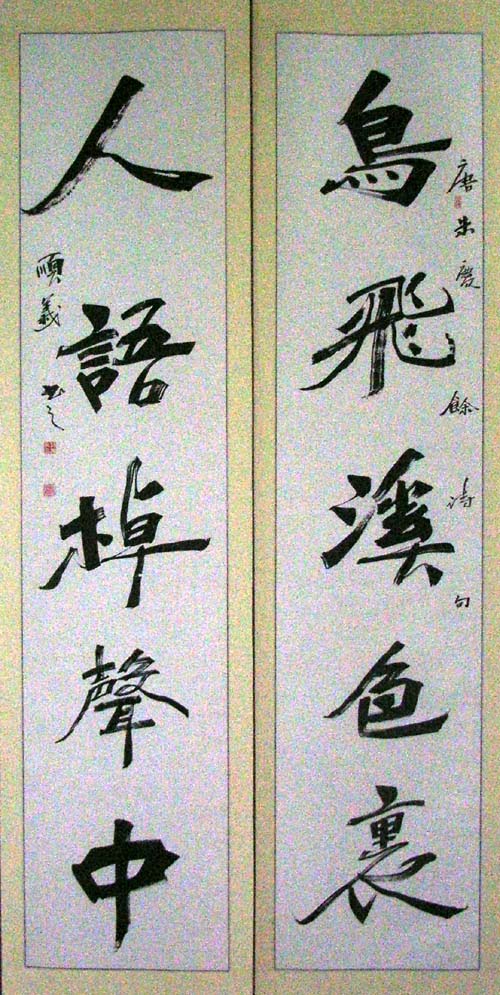 唐朱慶餘詩句
鳥飛溪色裏
人語棹聲中
順義書之